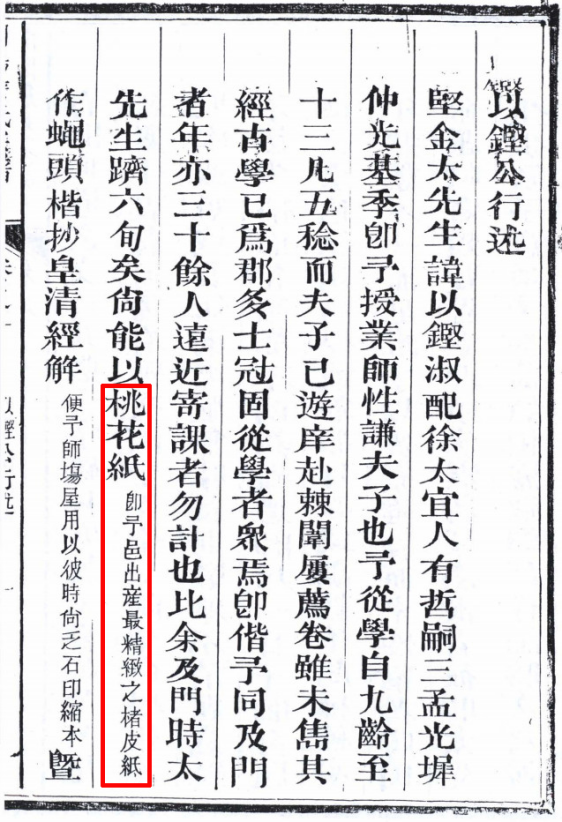 以鏗公行述
堅金太先生諱以鏗淑配徐太宜人有哲嗣三孟光墀
仲光基季卽予授業師性謙夫子也予從學自九齡至
十三凡五稔而夫子已遊庠赴棘闈屢薦卷雖未雋其
經古學已爲郡多士冠固從學者衆焉卽偕予同及門
者年亦三十餘人遠近寄課者勿計也比余及門時太
先生躋六旬矣尙能以桃花紙卽予邑出產最精緻之楮皮紙
作蠅頭楷抄皇清經解便予師塲屋用以彼時尙乏石印縮本曁